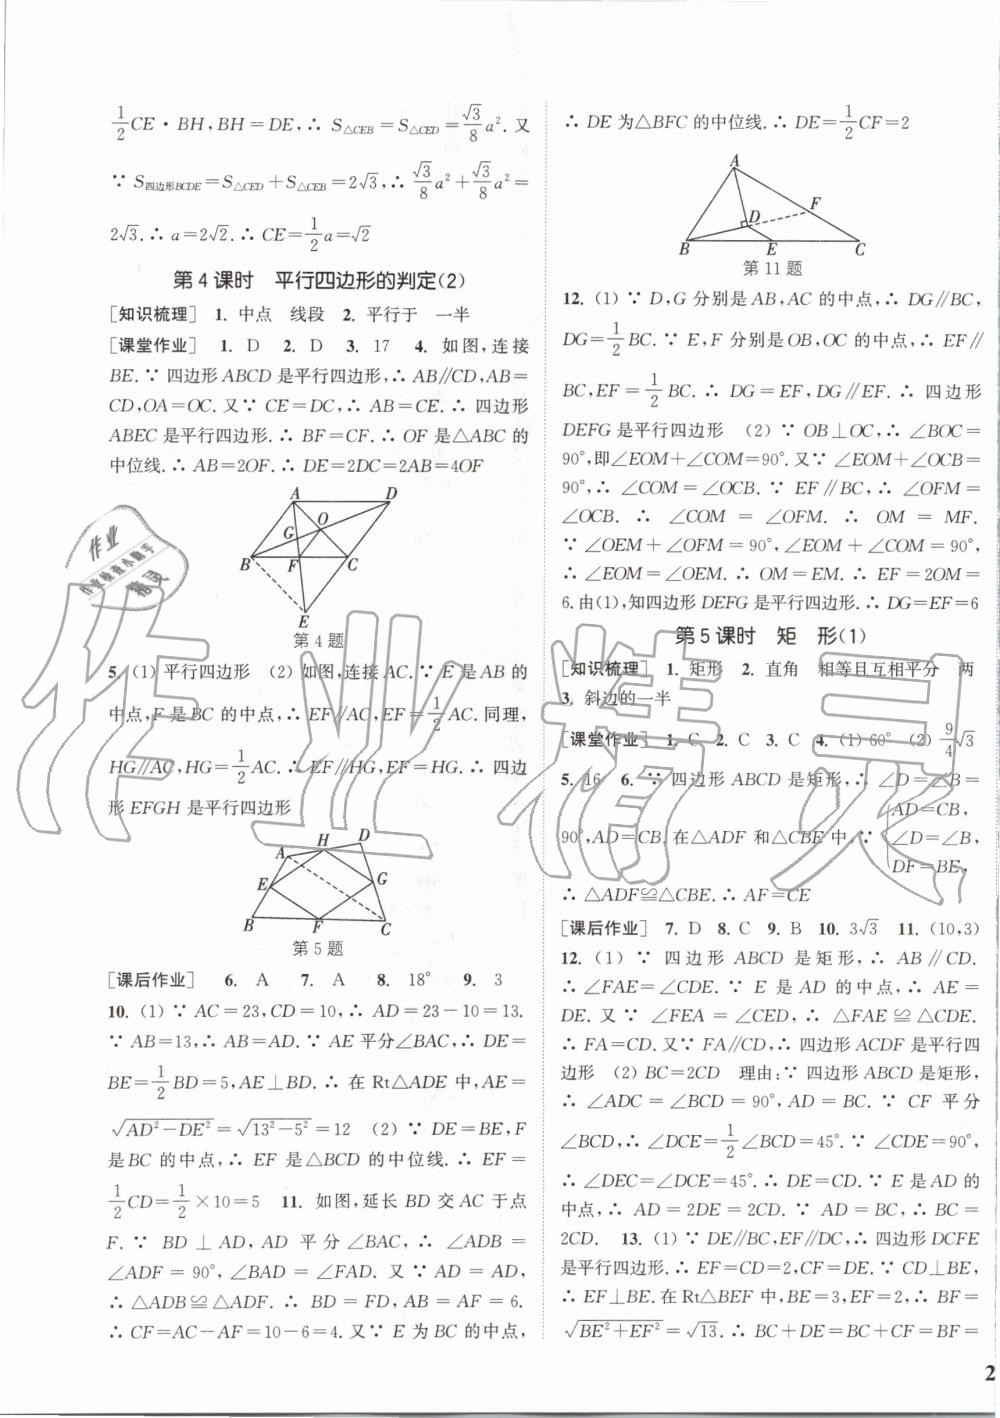 1/2 CE·BH,BH=DE,∴ S△CEB=S△CED=√3/8 a². 又
∵ S四边形BCDE=S△CED+S△CEB=2√3,∴ √3/8 a²+√3/8 a²=
2√3.∴ a=2√2.∴ CE=1/2 a=√2
第4课时 平行四边形的判定(2)
[知识梳理] 1. 中点 线段 2. 平行于 一半
[课堂作业] 1. D 2. D 3. 17 4. 如图,连接
BE.∵ 四边形ABCD是平行四边形,∴ AB∥CD,AB=
CD,OA=OC.又∵ CE=DC,∴ AB=CE.∴ 四边形
ABEC是平行四边形.∴ BF=CF.∴ OF是△ABC的
中位线.∴ AB=2OF.∴ DE=2DC=2AB=4OF
A D
G O
B F C
E
第4题
5. (1) 平行四边形 (2) 如图,连接AC.∵ E是AB的
中点,F是BC的中点,∴ EF∥AC,EF=1/2 AC.同理,
HG∥AC,HG=1/2 AC.∴ EF∥HG,EF=HG.∴ 四边
形EFGH是平行四边形
H D
A
E G
B F C
第5题
[课后作业] 6. A 7. A 8. 18° 9. 3
10. (1) ∵ AC=23,CD=10,∴ AD=23-10=13.
∵ AB=13,∴ AB=AD.∵ AE平分∠BAC,∴ DE=
BE=1/2 BD=5,AE⊥BD.∴ 在Rt△ADE中,AE=
√(AD²-DE²)=√(13²-5²)=12 (2) ∵ DE=BE,F
是BC的中点,∴ EF是△BCD的中位线.∴ EF=
1/2 CD=1/2×10=5 11. 如图,延长BD交AC于点
F.∵ BD⊥AD,AD平分∠BAC,∴ ∠ADB=
∠ADF=90°,∠BAD=∠FAD.又∵ AD=AD,
∴ △ADB≌△ADF.∴ BD=FD,AB=AF=6.
∴ CF=AC-AF=10-6=4.又∵ E为BC的中点,
∴ DE为△BFC的中位线.∴ DE=1/2 CF=2
A
F
D
B E C
第11题
12. (1) ∵ D,G分别是AB,AC的中点,∴ DG∥BC,
DG=1/2 BC.∵ E,F分别是OB,OC的中点,∴ EF∥
BC,EF=1/2 BC.∴ DG=EF,DG∥EF.∴ 四边形
DEFG是平行四边形 (2) ∵ OB⊥OC,∴ ∠BOC=
90°,即∠EOM+∠COM=90°.又∵ ∠EOM+∠OCB=
90°,∴ ∠COM=∠OCB.∵ EF∥BC,∴ ∠OFM=
∠OCB.∴ ∠COM=∠OFM.∴ OM=MF.
∵ ∠OEM+∠OFM=90°,∠EOM+∠COM=90°,
∴ ∠EOM=∠OEM.∴ OM=EM.∴ EF=2OM=
6.由(1),知四边形DEFG是平行四边形.∴ DG=EF=6
第5课时 矩 形(1)
[知识梳理] 1. 矩形 2. 直角 相等且互相平分 两
3. 斜边的一半
[课堂作业] 1. C 2. C 3. C 4. (1) 60° (2) 9/4 √3
5. 16 6. ∵ 四边形ABCD是矩形,∴ ∠D=∠B=
AD=CB,
90°,AD=CB.在△ADF和△CBE中,∵ ∠D=∠B,
DF=BE,
∴ △ADF≌△CBE.∴ AF=CE
[课后作业] 7. D 8. C 9. B 10. 3√3 11. (10,3)
12. (1) ∵ 四边形ABCD是矩形,∴ AB∥CD.
∴ ∠FAE=∠CDE.∵ E是AD的中点,∴ AE=
DE.又∵ ∠FEA=∠CED,∴ △FAE≌△CDE.
∴ FA=CD.又∵ FA∥CD,∴ 四边形ACDF是平行四
边形 (2) BC=2CD 理由:∵ 四边形ABCD是矩形,
∴ ∠ADC=∠BCD=90°,AD=BC.∵ CF平分
∠BCD,∴ ∠DCE=1/2∠BCD=45°.∵ ∠CDE=90°,
∴ ∠DEC=∠DCE=45°.∴ DE=CD.∵ E是AD的
中点,∴ AD=2DE=2CD.∵ AD=BC,∴ BC=
2CD. 13. (1) ∵ DE∥BC,EF∥DC,∴ 四边形DCFE
是平行四边形.∴ EF=CD=2,CF=DE.∵ CD⊥BE,
∴ EF⊥BE.在Rt△BEF中,BE=3,EF=2,∴ BF=
√(BE²+EF²)=√13.∴ BC+DE=BC+CF=BF=
2
作业精灵